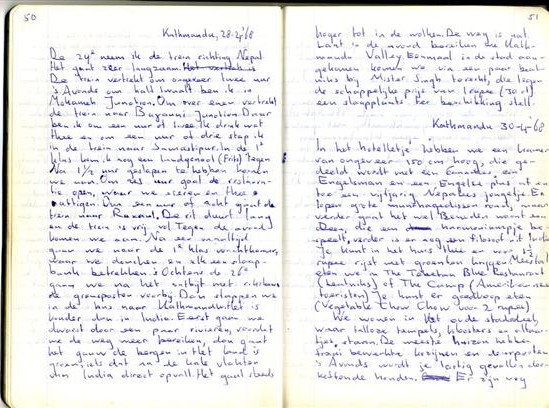 50
Kathmandu, 28-4-'68
De 24e neem ik de trein richting Nepal
Het gaat zeer langzaam.
De trein vertrekt om ongeveer twee uur
's Avonds om half ben ik in
Junction. Om over enen vertrekt
de trein naar Junction. Daar
ben ik om een uur of twee. Ik drink wat
thee en om een uur of drie stap ik
in de trein naar Samastipur. In de 1e
klas kom ik nog een landgenoot (Frits) tegen
Na 1½ uur geslapen te hebben komen
we aan. Om zes uur gaat de restaura-
tie open, waar we eieren en thee
nuttigen. Om een uur of acht gaat de
trein naar Raxaul. De rit duurt lang
en de trein is vrij vol. Tegen de avond
komen we aan. Na een maaltijd
gaan we naar de 1e klas wachtkamer,
waar we douchen en elk een slaap-
bank betrekken. 's Ochtens de 26e
gaan we na het ontbijt met riksha's
de grensposten voorbij. Dan stappen we
in de bus naar Kathmandu. Het is
minder dan in Indië. Eerst gaan we
dwars door een paar rivieren, voordat
we de weg meer bereiken, dan gaat
het gauw de bergen in. Het land is
groen, iets dat na de kale vlakten
van India direct opvalt. Het gaat steeds
51
hoger tot in de wolken. De weg is nat
Laat in de avond bereiken we Kath-
mandu Valley. Eenmaal in de stad aan-
gekomen komen we via een paar beat-
niks bij Mister Singh terecht, die tegen
de schappelijke prijs van 1 rupee (30 ct)
een slaapplaats ter beschikking stelt.
Kathmandu 30-4-'68
In het hotelletje hebben we een kamer
van ongeveer 150 cm hoog, die ge-
deeld wordt met een Canadees, een
Engelsman en een Engelse plus nt en
toe een vijftigjarig Nepalees jongetje. Er
lopen grote rond, maar
verder gaat het wel. Beneden woont een
Deen, die een harmoniumpje be-
speelt, verder is er nog een filosoof uit
Je kunt in het huis thee en voor 1½
rupee rijst met groenten krijgen. Meestal
eten we in The Tibetan Blue Restaurant
(beatniks) of The Camp (Amerikaanse
toeristen) Je kunt er goedkoop eten
(Vegetable Chow Chow voor 2 rupees)
We wonen in het oude stadsdeel,
waar talloze tempels, kloosters en altaar-
tjes staan. De meeste huizen hebben
fraai bewerkte kozijnen en deurposten
's Avonds wordt je lastig gevallen door
keffende honden. Er zijn nog